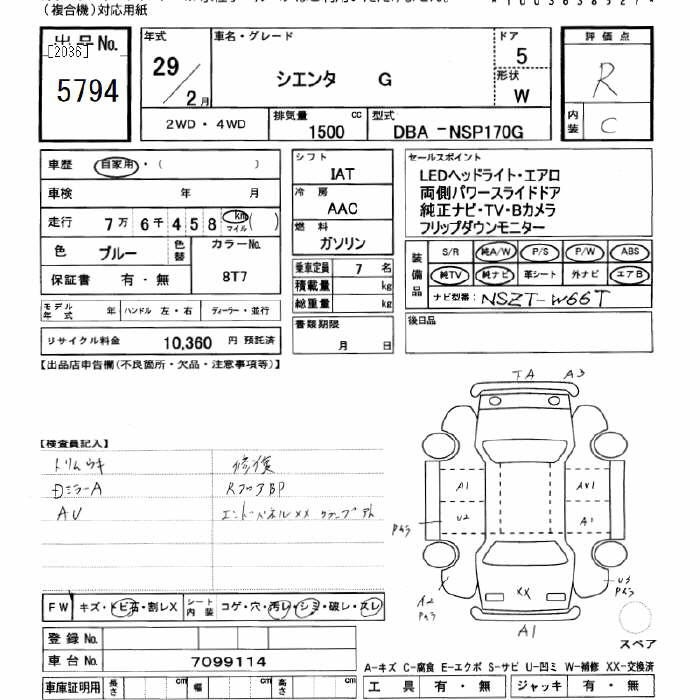 (複合機)対応用紙
出品No.
[2036]
5794
年式
29/2月
車名・グレード
シエンタ G
ドア
5
形状
W
評価点
R
内装
C
2WD・4WD
排気量
1500 cc
型式
DBA-NSP170G
車歴 自家用・( )
車検 年 月
走行 7万 6千 4 5 8 km マイル ( )
色 ブルー 色替
カラーNo.
8T7
保証書 有・無
モデル年式 年 ハンドル 左・右 ディーラー・並行
リサイクル料金 10,360 円 預託済
シフト
IAT
冷房
AAC
燃料
ガソリン
乗車定員 7 名
積載量 kg
総重量 kg
書類期限
月 日
セールスポイント
LEDヘッドライト・エアロ
両側パワースライドドア
純正ナビ・TV・Bカメラ
フリップダウンモニター
装備品
S/R 純A/W P/S P/W ABS
純TV 純ナビ 革シート 外ナビ エアB
ナビ型番: NSZT-W66T
後日品
【出品店申告欄(不良箇所・欠品・注意事項等)】
【検査員記入】
トリムウキ 修復
DミラーA RフロアBP
AU エンドーパネルXX
TA A3
A1
U2
AX1
A1
Pキズ
XX
A2
Pキズ
U3
Pキズ
A1
スペア
FW キズ・トビ石・割レX シート内装 コゲ・穴・汚レ・シミ・破レ・スレ
登録No.
車台No. 7099114
車庫証明用 長さ cm 幅 cm 高さ cm
A-キズ C-腐食 E-エクボ S-サビ U-凹ミ W-補修 XX-交換済
工具 有・無 ジャッキ 有・無